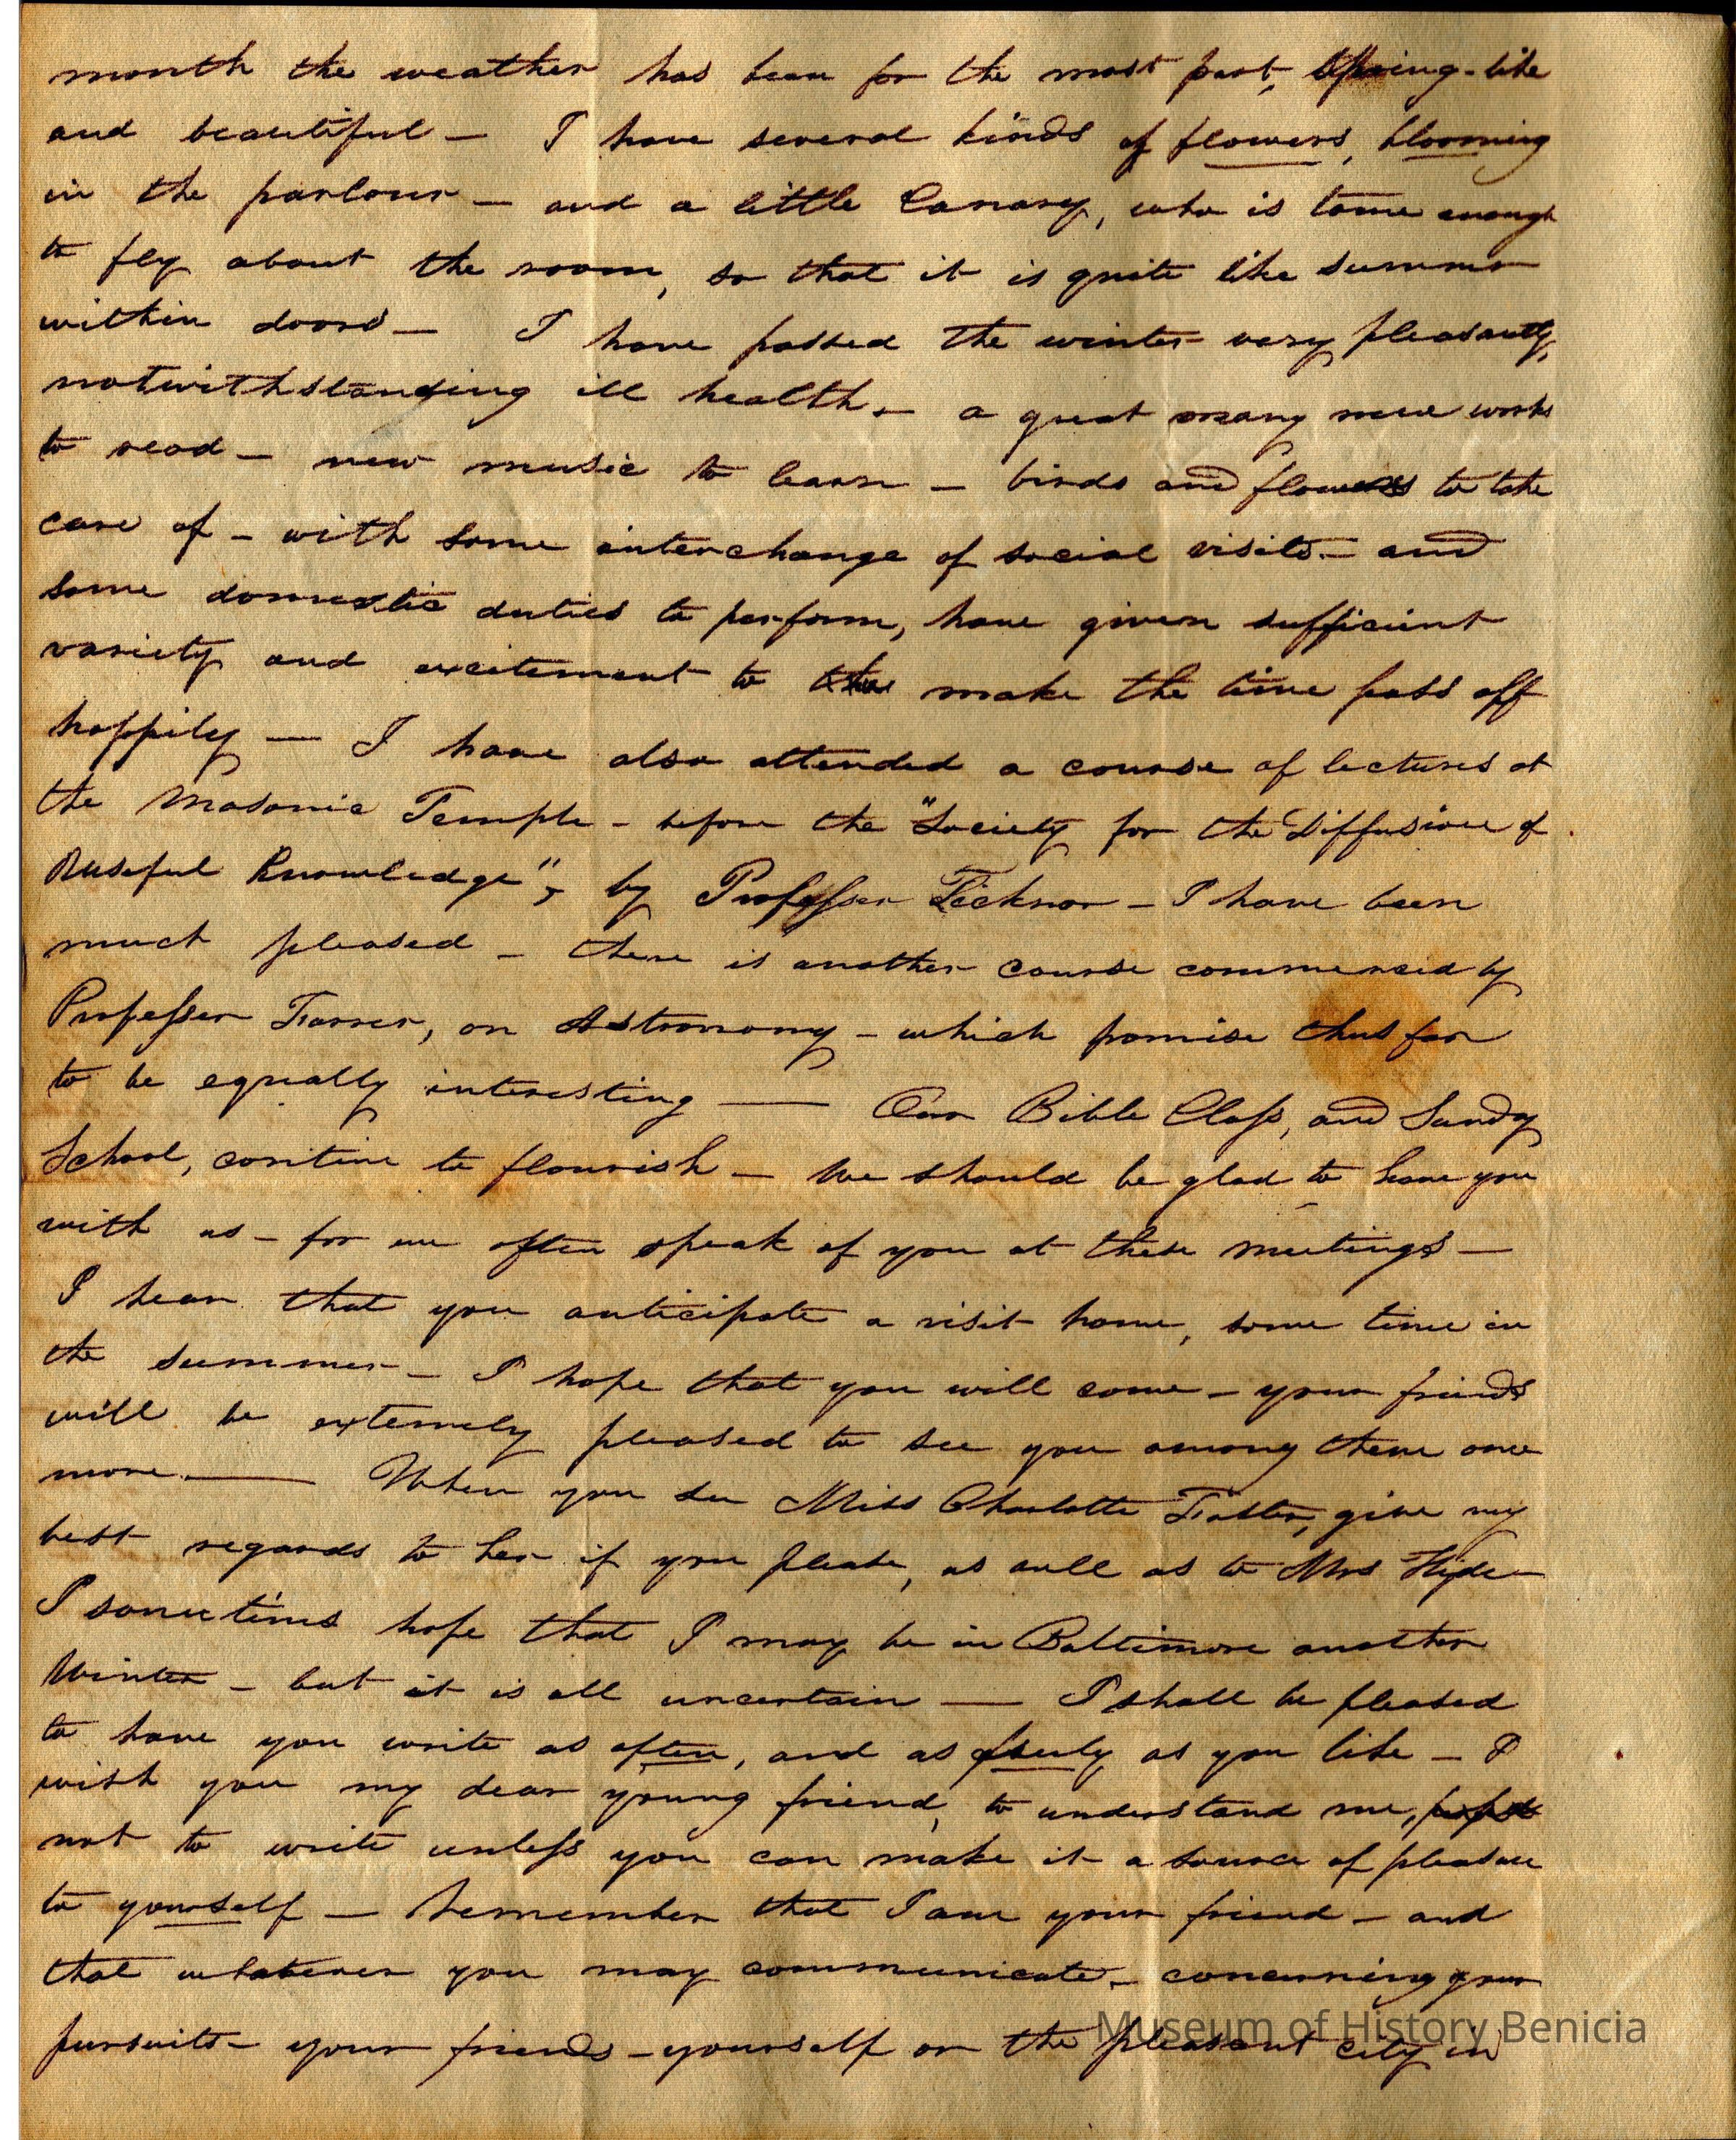 month the weather has been for the most part, Spring-like
and beautiful — I have several kinds of flowers, blooming
in the parlour — and a little Canary, who is tame enough
to fly about the room, so that it is quite like summer
within doors — I have passed the winter very pleasantly,
notwithstanding ill health — a great many new works
to read — new music to learn — birds and flowers to take
care of — with some interchange of social visits — and
some domestic duties to perform, have given sufficient
variety and excitement to make the time pass off
happily — I have also attended a course of lectures at
the Masonic Temple — before the "Society for the Diffusion of
Useful Knowledge", by Professor Ticknor — I have been
much pleased — there is another course commenced by
Professor Farrer, on Astronomy — which promise thus far
to be equally interesting — Our Bible Class, and Sunday
School, contine to flourish — We should be glad to have you
with us — for we often speak of you at these meetings —
I hear that you anticipate a visit home, some time in
the summer — I hope that you will come — your friends
will be extremely pleased to see you among them once
more. — When you see Miss Charlotte Foster, give my
best regards to her if you please, as well as to Mrs Hyde —
I sometimes hope that I may be in Baltimore another
Winter — but it is all uncertain — I shall be pleased
to have you write as often, and as freely as you like — I
wish you my dear young friend, to understand me,
not to write unless you can make it a source of pleasure
to yourself — Remember that I am your friend — and
that whatever you may communicate — concerning your
pursuits — your friends — yourself or the pleasant city in
Museum of History Benicia